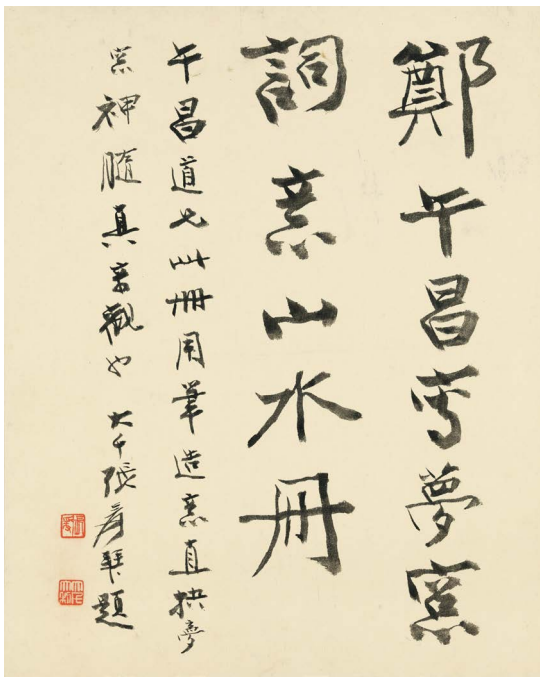 鄭午昌寫夢窻
詞意山水冊
午昌道兄此冊用筆造意直抉夢
窻神髓真奇觀也 大千張爰拜題